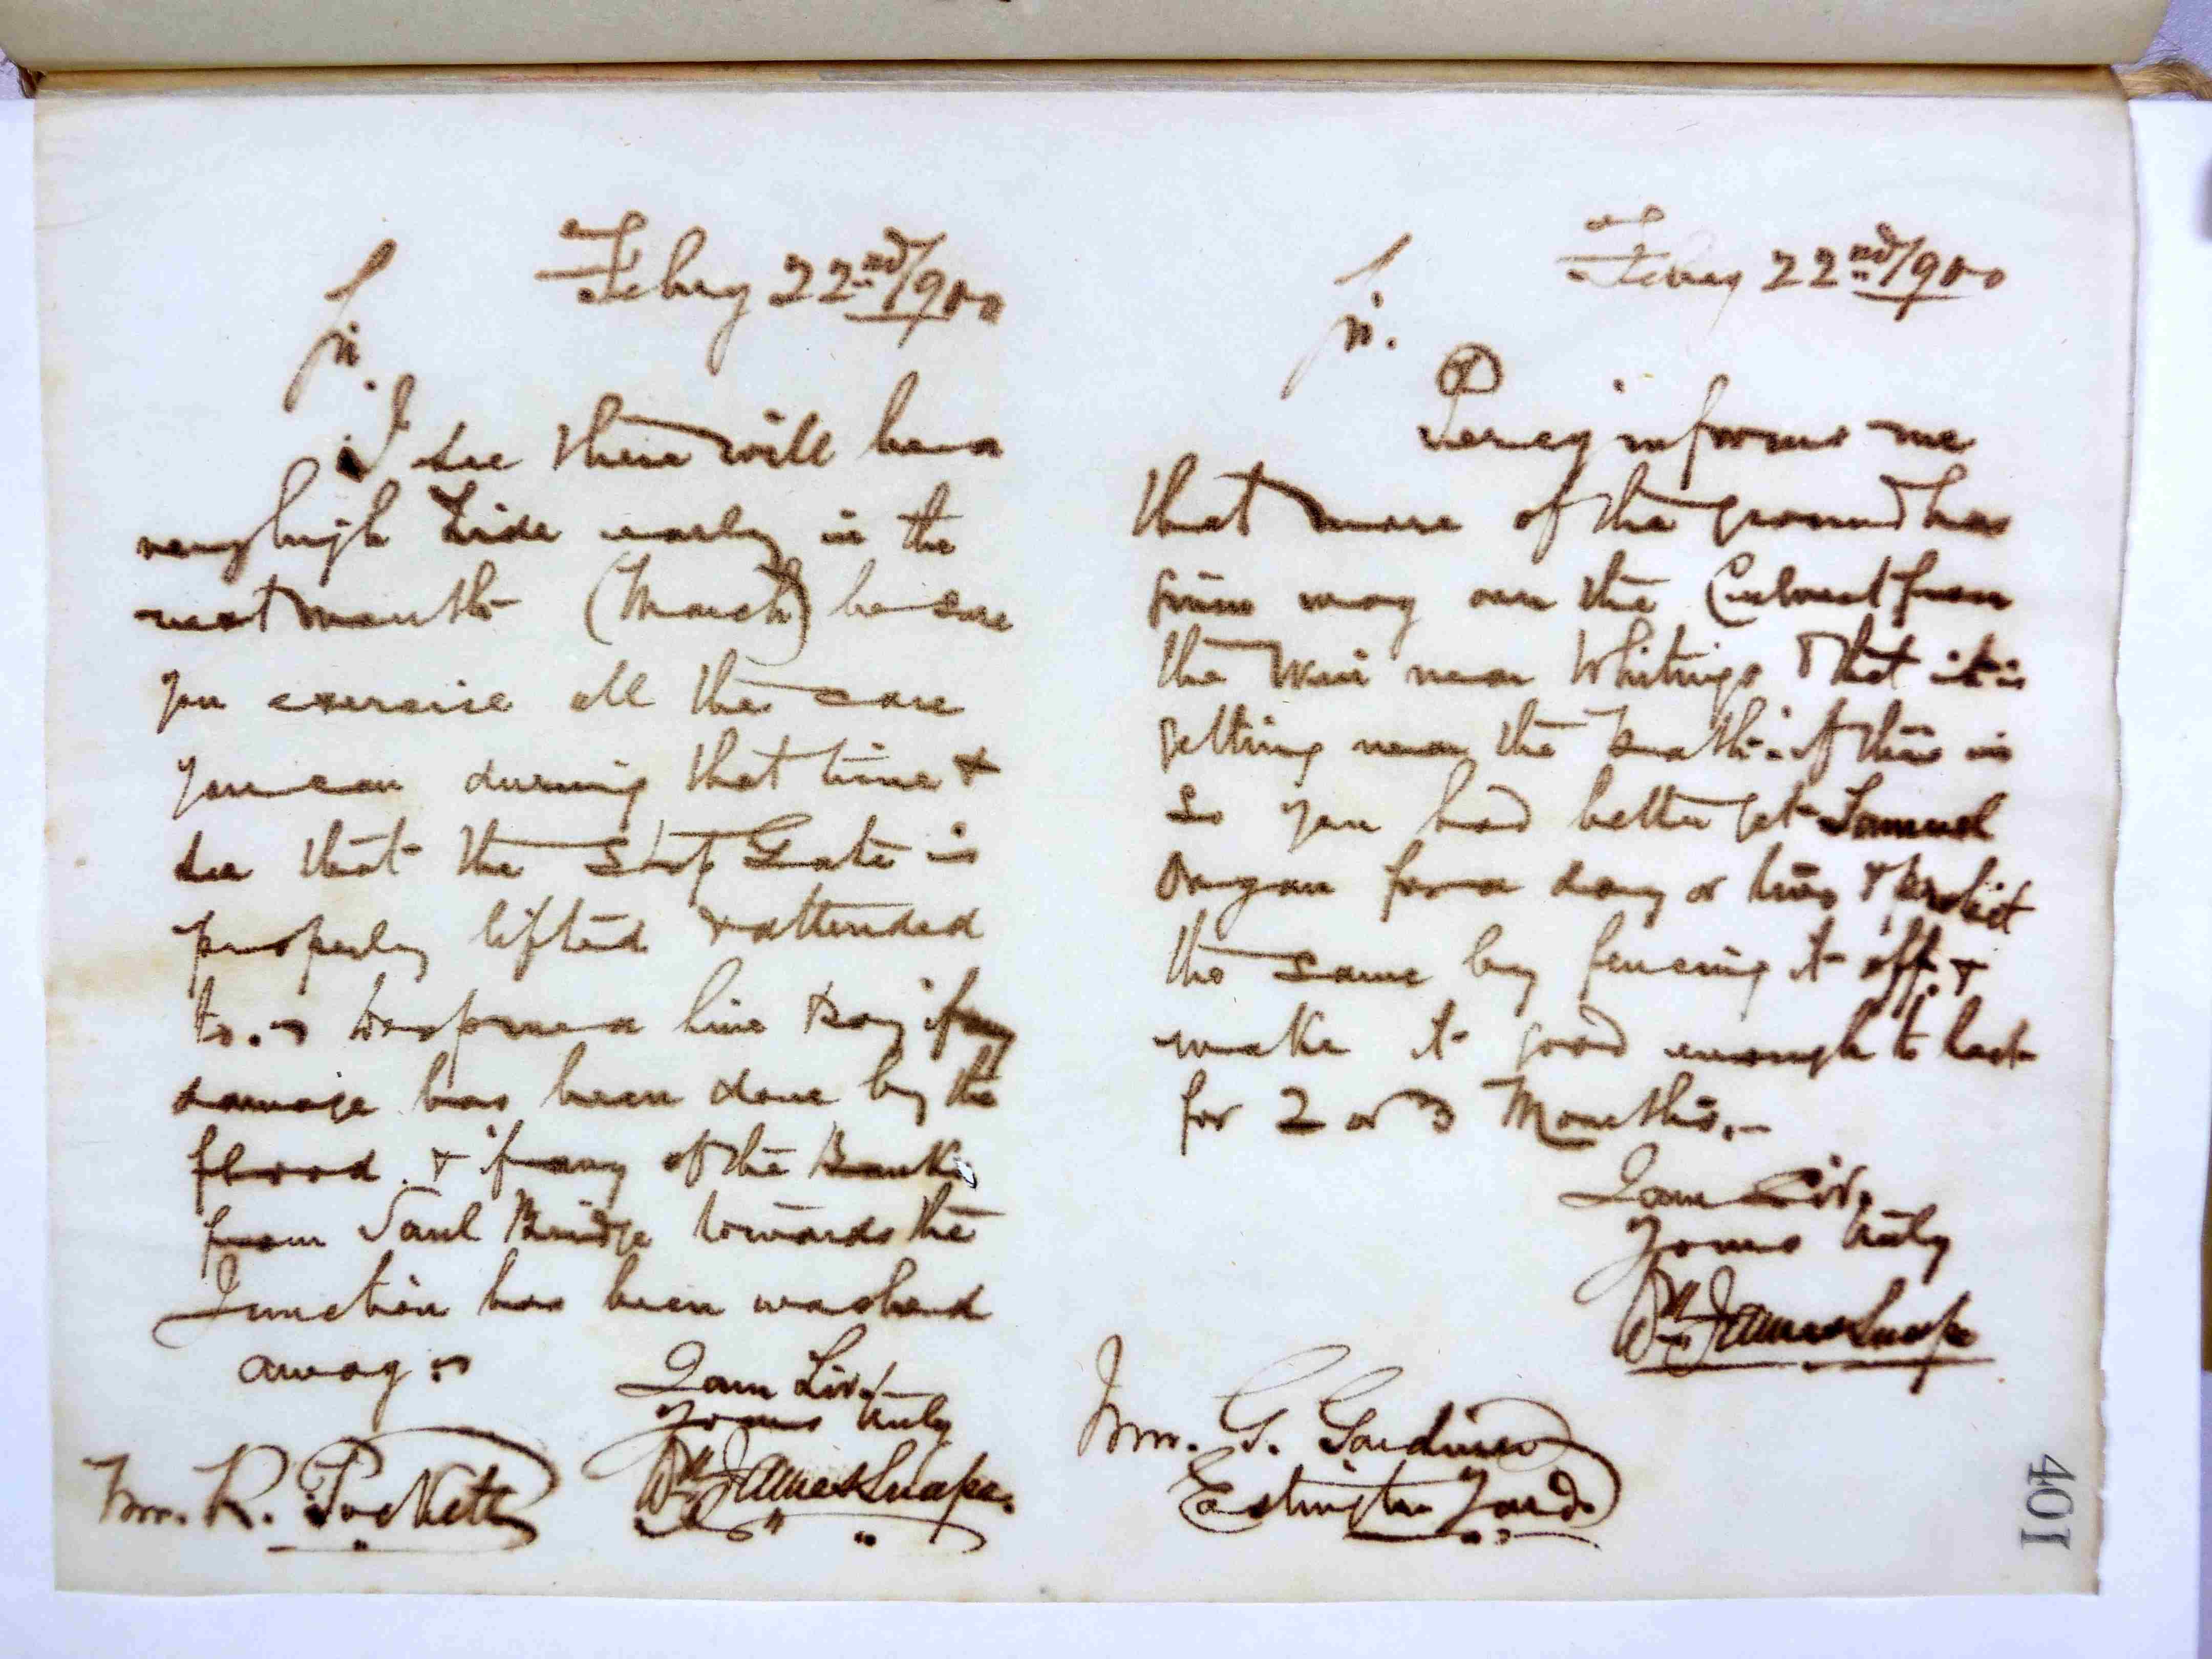 Febry 22nd/900
Sir.
I see there will be a
very high Tide early in the
next month (March) be sure
you exercise all the care
you can during that time &
see that the Stop Gate is
properly lifted & attended
to. – drop me a line & say if any
damage has been done by the
flood. & if any of the Bank
from Saul Bridge towards the
Junction has been washed
away :–
I am Sir,
Yours truly
Wm James Snape.
Mr. R. Pockett
Febry 22nd/900
Sir.
Percy informs me
that more of the ground has
given way over the Culvert from
the Weir near Whitings & that it is
getting near the Path : if this is
so you had better get Samuel
Organ for a day or two & protect
the same by fencing it off. &
make it good enough to last
for 2 or 3 Months. –
I am Sir,
Yours truly
Wm James Snape
Mr. G. Gardiner
Eastington Yard.
401